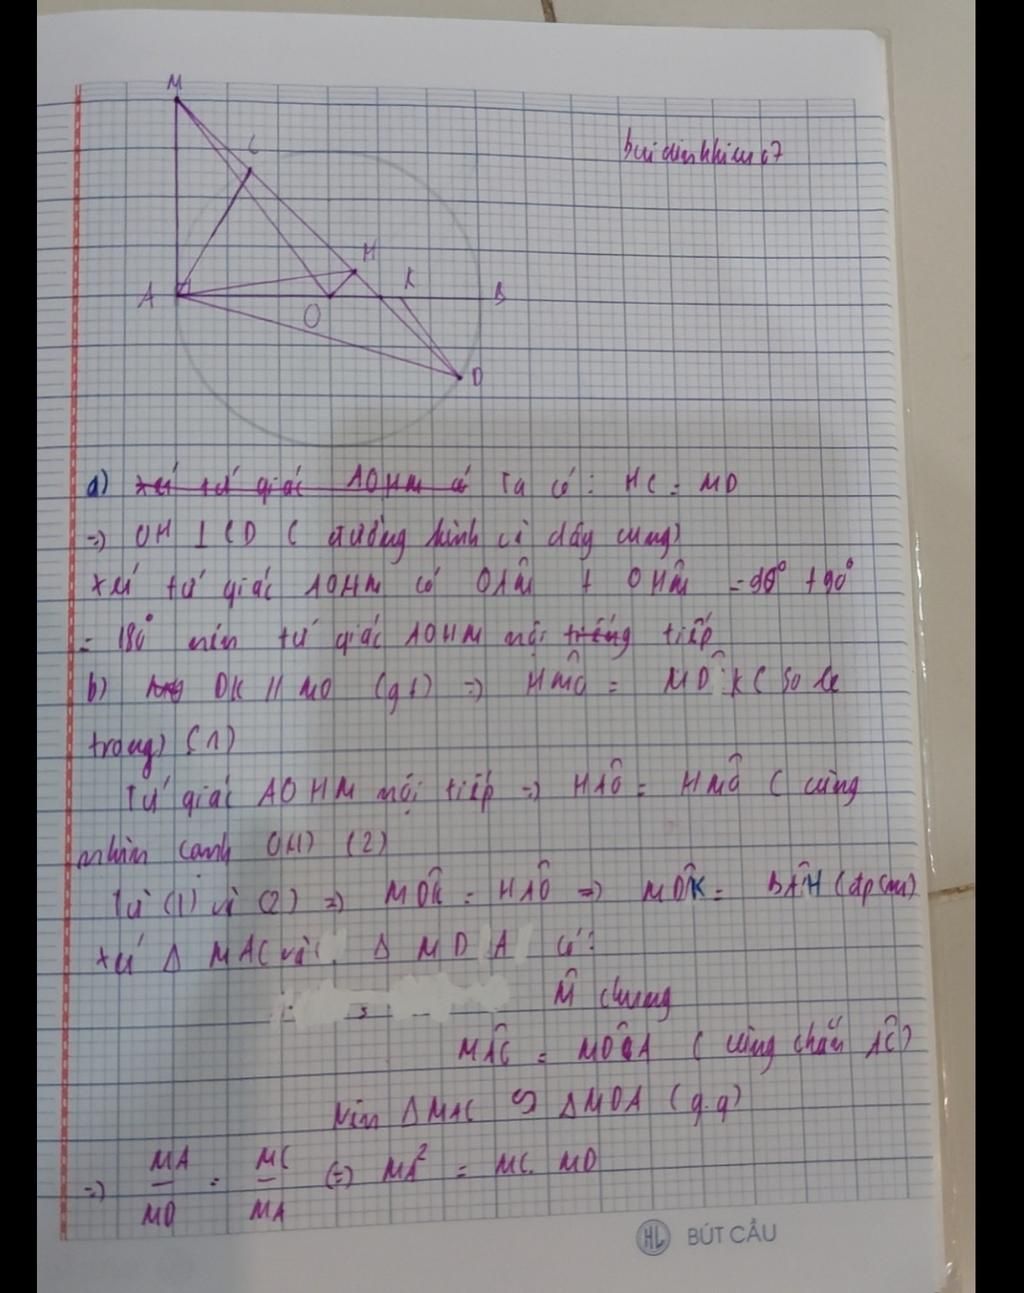 M
C
buidinhkhiem67
H
K
A
O
B
D
a) xét tứ giác AOHM có Ta có: HC = MD
=) OH ⊥ CD ( đường kính và dây cung)
xét tứ giác AOHM có OÂM + OĤM = 90° + 90°
= 180° nên tứ giác AOHM nội tiếp
b) DK // MO (gt) =) HM̂O = MD̂K ( so le
trong) (1)
Tứ giác AOHM nội tiếp =) HÂO = HM̂O ( cùng
nhìn cạnh OH) (2)
Từ (1) và (2) =) MD̂K = HÂO =) MD̂K = BÂH (đpcm)
xét Δ MAC và Δ MDA có:
M̂ chung
MÂC = MD̂A ( cùng chắn AC)
Nên ΔMAC ∽ ΔMDA (g.g)
=) MA/MD = MC/MA (=) MA² = MC. MD
HL BÚT CẦU